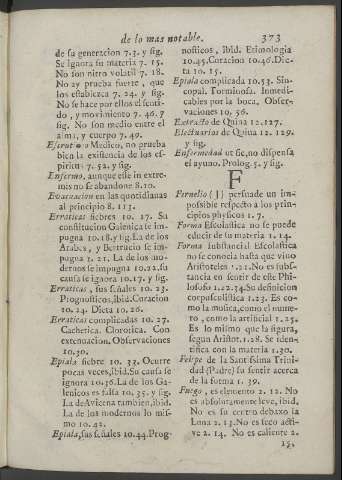 de lo mas notable. 373
de su generacion 7. 3. y sig.
Se ignora su materia 7. 15.
No son nitro volatil 7. 18.
No ay prueba fuerte, que
los establezca 7. 24. y sig.
No se hace por ellos el senti-
do, y movimiento 7. 46. y
sig. No son medio entre el
alma, y cuerpo 7. 49.
Medico, no prueba
bien la existencia de los es-
piritus 7. 52. y sig.
Enfermo, aunque esté in extre-
mis no se abandone 8. 10.
Evacuacion en las quotidianas
al principio 8. 113.
Erraticas fiebres 10. 17. Su
constitucion Galenica se im-
pugna 10. 18. y sig. La de los
Arabes, y Berrucio se im-
pugna 21. La de los mo-
dernos se impugna 10. 22. su
causa se ignora 10. 17. y sig.
Erraticas, sus señales 10. 23.
Prognosticos, ibid. Coracion
10. 24. Dieta 10. 26.
Erraticas complicadas 10. 27.
Cachetica. Clorotica. Con
extenuacion. Observaciones
10. 30.
Epiala fiebre 10. 33. Ocurre
pocas veces, ibid. Su causa se
ignora 10. 36. La de los Ga-
lenicos es falsa 10. 35. y sig.
La de Avicena tambien, ibid.
La de los modernos lo mis-
mo 10. 42.
Epiala, sus señales 10. 44. Prog-
nosticos, ibid. Etimologia
10. 45. Coracion 10. 46. Die-
ta 10. 15.
Epiala complicada 10. 53. Sin-
copal. Torminosa. Inmedi-
cables por la boca. Obser-
vaciones 10. 56.
Extracto de Quina 12. 127.
Electuarios de Quina 12. 129.
y sig.
Enfermedad ut sic, no dispensa
el ayuno. Prolog. 5. y sig.
F
Fernelio (J) persuade un im-
possible respecto a los prin-
cipios physicos 1. 7.
Forma Escolastica no se puede
educir de su materia 1. 14.
Forma substancial Escolastica
no se conocia hasta que vino
Aristoteles 1. 21. No es subs-
tancia en sentir de este Phi-
losofo 1. 22. 34. Su definicion
corpuscolistica 1. 23. Es co-
mo la musica, como el nume-
ro, como la artificial 1. 25.
Es lo mismo que la figura,
segun Aristot. 1. 28. Se iden-
tifica con la materia 1. 30.
Felipe de la Santissima Trini-
dad (Padre) su sentir acerca
de la forma 1. 39.
Fuego, es elemento 2. 12. No
es absolutamente leve, ibid.
No es su centro debaxo la
Luna 2. 13. No es seco acti-
ve 2. 14. No es caliente 2.
15.